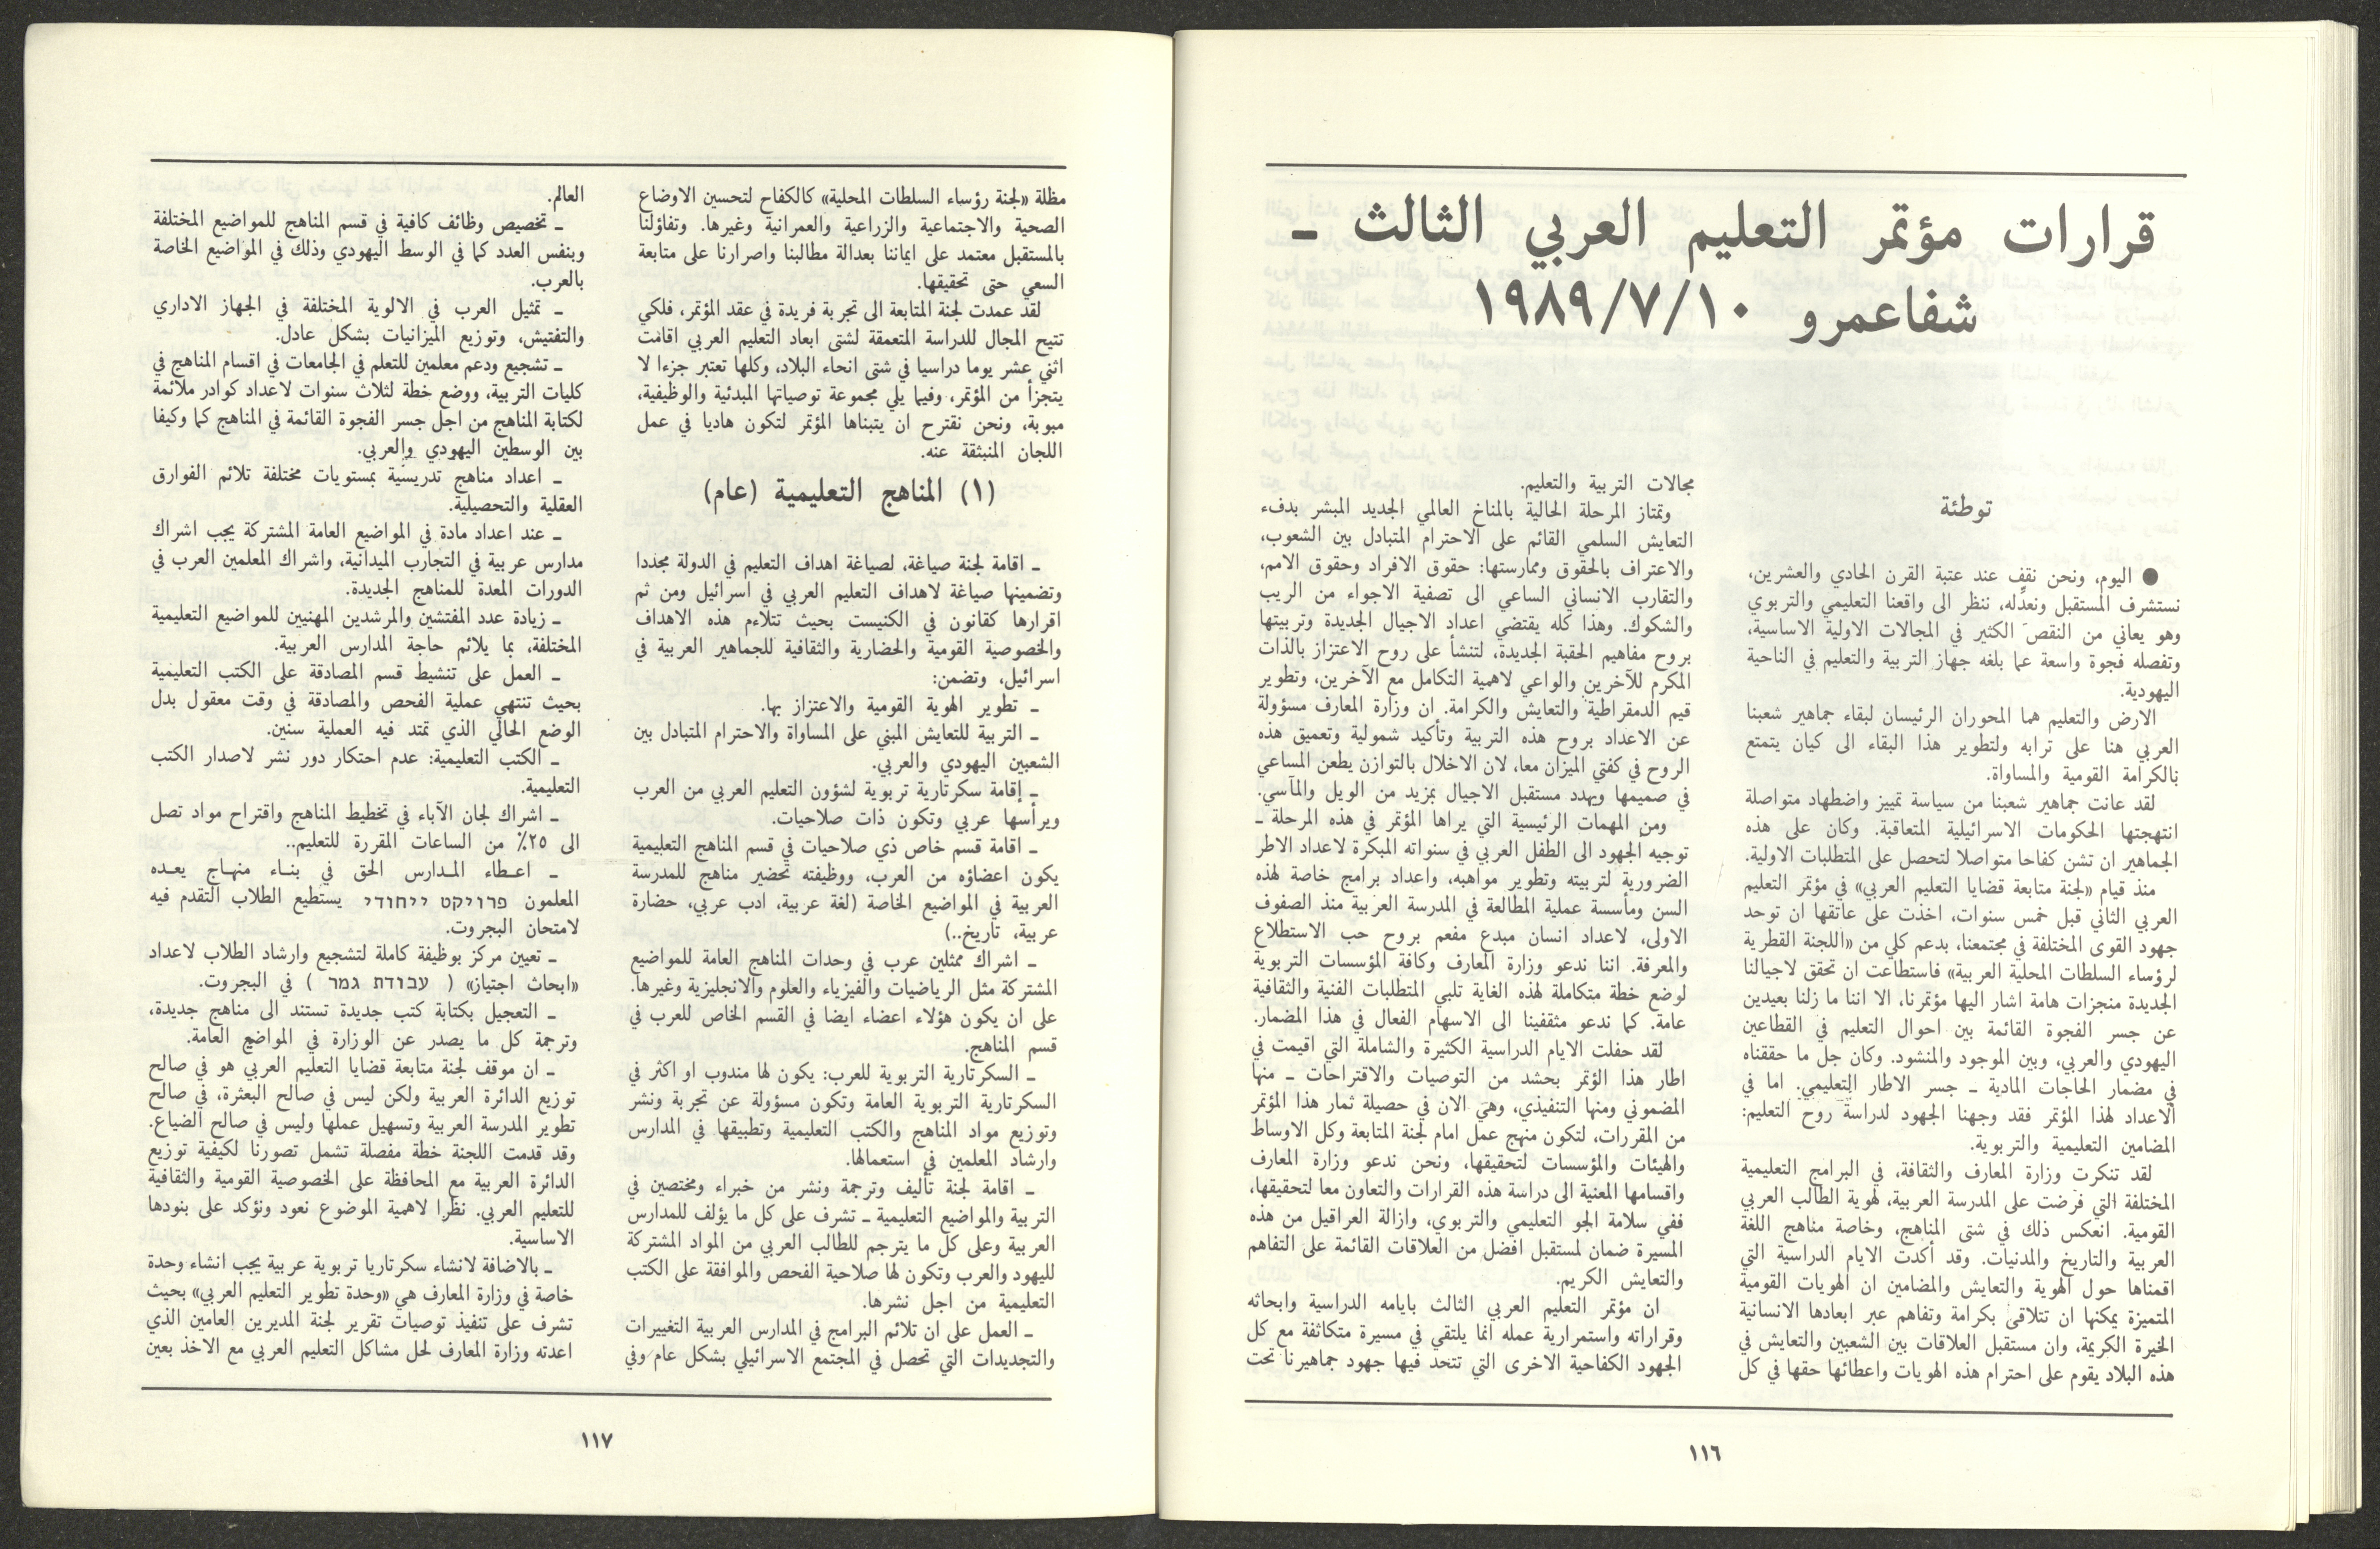 قرارات مؤتمر التعليم العربي الثالث ـ
شفاعمرو ١٩٨٩/٧/١٠
توطئة
● اليوم، ونحن نقف عند عتبة القرن الحادي والعشرين،
نستشرف المستقبل ونعدّله، ننظر الى واقعنا التعليمي والتربوي
وهو يعاني من النقص الكثير في المجالات الاولية الاساسية،
وتفصله فجوة واسعة عما بلغه جهاز التربية والتعليم في الناحية
اليهودية.
الارض والتعليم هما المحوران الرئيسان لبقاء جماهير شعبنا
العربي هنا على ترابه ولتطوير هذا البقاء الى كيان يتمتع
بالكرامة القومية والمساواة.
لقد عانت جماهير شعبنا من سياسة تمييز واضطهاد متواصلة
انتهجتها الحكومات الاسرائيلية المتعاقبة. وكان على هذه
الجماهير ان تشن كفاحا متواصلا لتحصل على المتطلبات الاولية.
منذ قيام «لجنة متابعة قضايا التعليم العربي» في مؤتمر التعليم
العربي الثاني قبل خمس سنوات، اخذت على عاتقها ان توحد
جهود القوى المختلفة في مجتمعنا، بدعم كلي من «اللجنة القطرية
لرؤساء السلطات المحلية العربية» فاستطاعت ان تحقق لاجيالنا
الجديدة منجزات هامة اشار اليها مؤتمرنا، الا اننا ما زلنا بعيدين
عن جسر الفجوة القائمة بين احوال التعليم في القطاعين
اليهودي والعربي، وبين الموجود والمنشود. وكان جل ما حققناه
في مضمار الحاجات المادية ـ جسر الاطار التعليمي. اما في
الاعداد لهذا المؤتمر فقد وجهنا الجهود لدراسة روح التعليم:
المضامين التعليمية والتربوية.
لقد تنكرت وزارة المعارف والثقافة، في البرامج التعليمية
المختلفة التي فرضت على المدرسة العربية، لهوية الطالب العربي
القومية. انعكس ذلك في شتى المناهج، وخاصة مناهج اللغة
العربية والتاريخ والمدنيات. وقد أكدت الايام الدراسية التي
اقمناها حول الهوية والتعايش والمضامين ان الهويات القومية
المتميزة يمكنها ان تتلاقى بكرامة وتفاهم عبر ابعادها الانسانية
الخيرة الكريمة، وان مستقبل العلاقات بين الشعبين والتعايش في
هذه البلاد يقوم على احترام هذه الهويات واعطائها حقها في كل
مجالات التربية والتعليم.
وتمتاز المرحلة الحالية بالمناخ العالمي الجديد المبشر بدفء
التعايش السلمي القائم على الاحترام المتبادل بين الشعوب،
والاعتراف بالحقوق وممارستها: حقوق الافراد وحقوق الامم،
والتقارب الانساني الساعي الى تصفية الاجواء من الريب
والشكوك. وهذا كله يقتضي اعداد الاجيال الجديدة وتربيتها
بروح مفاهيم الحقبة الجديدة، لتنشأ على روح الاعتزاز بالذات
المكرم للآخرين والواعي لاهمية التكامل مع الآخرين، وتطوير
قيم الدمقراطية والتعايش والكرامة. ان وزارة المعارف مسؤولة
عن الاعداد بروح هذه التربية وتأكيد شمولية وتعميق هذه
الروح في كفتي الميزان معا، لان الاخلال بالتوازن يطعن المساعي
في صميمها ويهدد مستقبل الاجيال بمزيد من الويل والمآسي.
ومن المهمات الرئيسية التي يراها المؤتمر في هذه المرحلة ـ
توجيه الجهود الى الطفل العربي في سنواته المبكرة لاعداد الاطر
الضرورية لتربيته وتطوير مواهبه، واعداد برامج خاصة لهذه
السن ومأسسة عملية المطالعة في المدرسة العربية منذ الصفوف
الاولى، لاعداد انسان مبدع مفعم بروح حب الاستطلاع
والمعرفة. اننا ندعو وزارة المعارف وكافة المؤسسات التربوية
لوضع خطة متكاملة لهذه الغاية تلبي المتطلبات الفنية والثقافية
عامة. كما ندعو مثقفينا الى الاسهام الفعال في هذا المضمار.
لقد حفلت الايام الدراسية الكثيرة والشاملة التي اقيمت في
اطار هذا الؤتمر بحشد من التوصيات والاقتراحات ـ منها
المضموني ومنها التنفيذي، وهي الان في حصيلة ثمار هذا المؤتمر
من المقررات، لتكون منهج عمل امام لجنة المتابعة وكل الاوساط
والهيئات والمؤسسات لتحقيقها، ونحن ندعو وزارة المعارف
واقسامها المعنية الى دراسة هذه القرارات والتعاون معا لتحقيقها،
ففي سلامة الجو التعليمي والتربوي، وازالة العراقيل من هذه
المسيرة ضمان لمستقبل افضل من العلاقات القائمة على التفاهم
والتعايش الكريم.
ان مؤتمر التعليم العربي الثالث بايامه الدراسية وابحاثه
وقراراته واستمرارية عمله انما يلتقي في مسيرة متكاثفة مع كل
الجهود الكفاحية الاخرى التي تتحد فيها جهود جماهيرنا تحت
١١٦
مظلة «لجنة رؤساء السلطات المحلية» كالكفاح لتحسين الاوضاع
الصحية والاجتماعية والزراعية والعمرانية وغيرها. وتفاؤلنا
بالمستقبل معتمد على ايماننا بعدالة مطالبنا واصرارنا على متابعة
السعي حتى تحقيقها.
لقد عمدت لجنة المتابعة الى تجربة فريدة في عقد المؤتمر، فلكي
تتيح المجال للدراسة المتعمقة لشتى ابعاد التعليم العربي اقامت
اثني عشر يوما دراسيا في شتى انحاء البلاد، وكلها تعتبر جزءا لا
يتجزأ من المؤتمر، وفيما يلي مجموعة توصياتها المبدئية والوظيفية،
مبوبة، ونحن نقترح ان يتبناها المؤتمر لتكون هاديا في عمل
اللجان المنبثقة عنه.
(١) المناهج التعليمية (عام)
ـ اقامة لجنة صياغة، لصياغة اهداف التعليم في الدولة مجددا
وتضمينها صياغة لاهداف التعليم العربي في اسرائيل ومن ثم
اقرارها كقانون في الكنيست بحيث تتلاءم هذه الاهداف
والخصوصية القومية والحضارية والثقافية للجماهير العربية في
اسرائيل، وتضمن:
ـ تطوير الهوية القومية والاعتزاز بها.
ـ التربية للتعايش المبني على المساواة والاحترام المتبادل بين
الشعبين اليهودي والعربي.
ـ إقامة سكرتارية تربوية لشؤون التعليم العربي من العرب
ويرأسها عربي وتكون ذات صلاحيات.
ـ اقامة قسم خاص ذي صلاحيات في قسم المناهج التعليمية
يكون اعضاؤه من العرب، ووظيفته تحضير مناهج للمدرسة
العربية في المواضيع الخاصة (لغة عربية، ادب عربي، حضارة
عربية، تاريخ..)
ـ اشراك ممثلين عرب في وحدات المناهج العامة للمواضيع
المشتركة مثل الرياضيات والفيزياء والعلوم والانجليزية وغيرها.
على ان يكون هؤلاء اعضاء ايضا في القسم الخاص للعرب في
قسم المناهج.
ـ السكرتارية التربوية للعرب: يكون لها مندوب او اكثر في
السكرتارية التربوية العامة وتكون مسؤولة عن تجربة ونشر
وتوزيع مواد المناهج والكتب التعليمية وتطبيقها في المدارس
وارشاد المعلمين في استعمالها.
ـ اقامة لجنة تأليف وترجمة ونشر من خبراء ومختصين في
التربية والمواضيع التعليمية ـ تشرف على كل ما يؤلف للمدارس
العربية وعلى كل ما يترجم للطالب العربي من المواد المشتركة
لليهود والعرب وتكون لها صلاحية الفحص والموافقة على الكتب
التعليمية من اجل نشرها.
ـ العمل على ان تلائم البرامج في المدارس العربية التغييرات
والتجديدات التي تحصل في المجتمع الاسرائيلي بشكل عام وفي
العالم.
ـ تخصيص وظائف كافية في قسم المناهج للمواضيع المختلفة
وبنفس العدد كما في الوسط اليهودي وذلك في المواضيع الخاصة
بالعرب.
ـ تمثيل العرب في الالوية المختلفة في الجهاز الاداري
والتفتيش، وتوزيع الميزانيات بشكل عادل.
ـ تشجيع ودعم معلمين للتعلم في الجامعات في اقسام المناهج في
كليات التربية، ووضع خطة لثلاث سنوات لاعداد كوادر ملائمة
لكتابة المناهج من اجل جسر الفجوة القائمة في المناهج كما وكيفا
بين الوسطين اليهودي والعربي.
ـ اعداد مناهج تدريسية بمستويات مختلفة تلائم الفوارق
العقلية والتحصيلية.
ـ عند اعداد مادة في المواضيع العامة المشتركة يجب اشراك
مدارس عربية في التجارب الميدانية، واشراك المعلمين العرب في
الدورات المعدة للمناهج الجديدة.
ـ زيادة عدد المفتشين والمرشدين المهنيين للمواضيع التعليمية
المختلفة، بما يلائم حاجة المدارس العربية.
ـ العمل على تنشيط قسم المصادقة على الكتب التعليمية
بحيث تنتهي عملية الفحص والمصادقة في وقت معقول بدل
الوضع الحالي الذي تمتد فيه العملية سنين.
ـ الكتب التعليمية: عدم احتكار دور نشر لاصدار الكتب
التعليمية.
ـ اشراك لجان الآباء في تخطيط المناهج واقتراح مواد تصل
الى ٢٥٪ من الساعات المقررة للتعليم..
ـ اعـطاء المـدارس الحق في بنـاء منهـاج يعـده
المعلمون פרויקט ייחודי يستطيع الطلاب التقدم فيه
لامتحان البجروت.
ـ تعيين مركز بوظيفة كاملة لتشجيع وارشاد الطلاب لاعداد
«ابحاث اجتياز» ( עבודת גמר ) في البجروت.
ـ التعجيل بكتابة كتب جديدة تستند الى مناهج جديدة،
وترجمة كل ما يصدر عن الوزارة في المواضع العامة.
ـ ان موقف لجنة متابعة قضايا التعليم العربي هو في صالح
توزيع الدائرة العربية ولكن ليس في صالح البعثرة، في صالح
تطوير المدرسة العربية وتسهيل عملها وليس في صالح الضياع.
وقد قدمت اللجنة خطة مفصلة تشمل تصورنا لكيفية توزيع
الدائرة العربية مع المحافظة على الخصوصية القومية والثقافية
للتعليم العربي. نظرا لاهمية الموضوع نعود ونؤكد على بنودها
الاساسية.
ـ بالاضافة لانشاء سكرتاريا تربوية عربية يجب انشاء وحدة
خاصة في وزارة المعارف هي «وحدة تطوير التعليم العربي» بحيث
تشرف على تنفيذ توصيات تقرير لجنة المديرين العامين الذي
اعدته وزارة المعارف لحل مشاكل التعليم العربي مع الاخذ بعين
١١٧